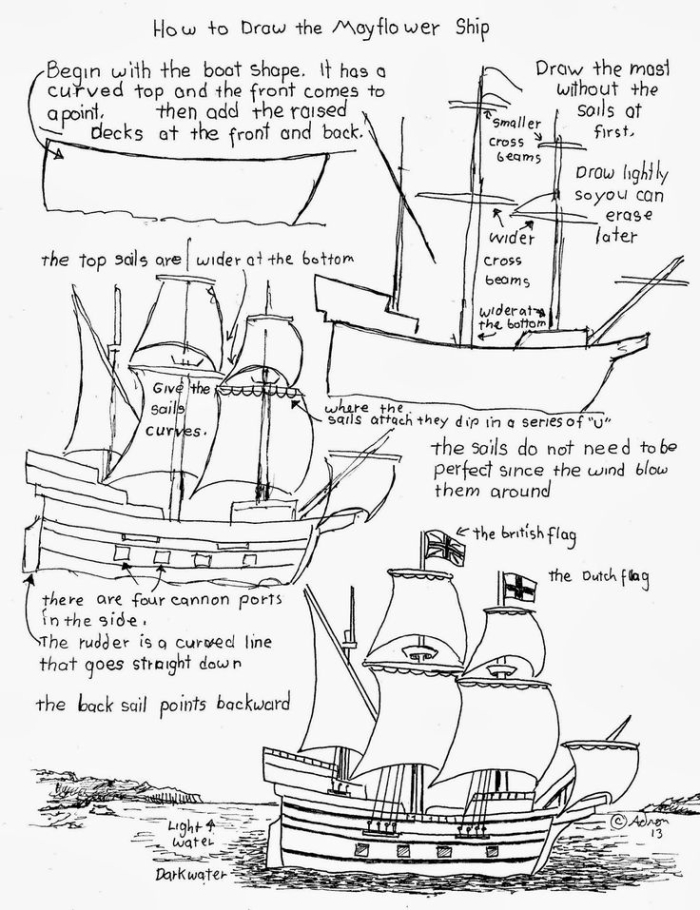 How to Draw the Mayflower Ship
Begin with the boat shape. It has a
curved top and the front comes to
a point. then add the raised
decks at the front and back.
Draw the mast
without the
sails at
first.
smaller
cross
beams
Draw lightly
so you can
erase
later
wider
cross
beams
wider at
the bottom
the top sails are wider at the bottom
Give the
sails
curves.
where the
sails attach they dip in a series of "U"
the sails do not need to be
perfect since the wind blow
them around
the british flag
the Dutch flag
there are four cannon ports
in the side.
The rudder is a curved line
that goes straight down
the back sail points backward
Light
water
Dark water
© Adron
13